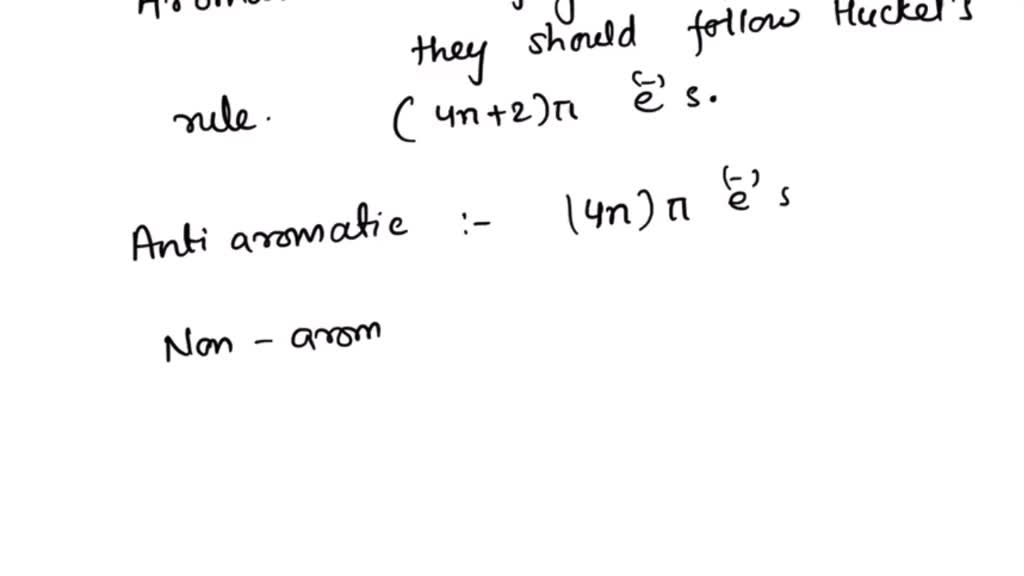 they should follow Huckel's
rule. (4n+2)π e(-)s.
Anti aromatic :- (4n)π e(-)s
Non - arom